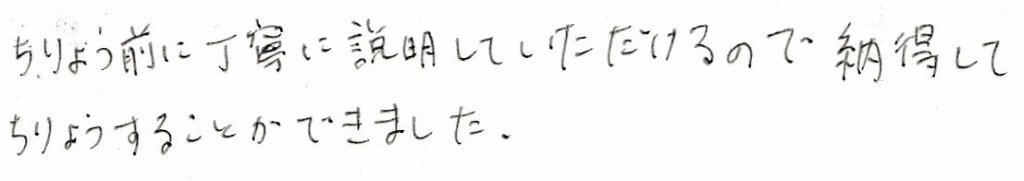 ちりょう前に丁寧に説明していただけるので納得して
ちりょうすることができました.